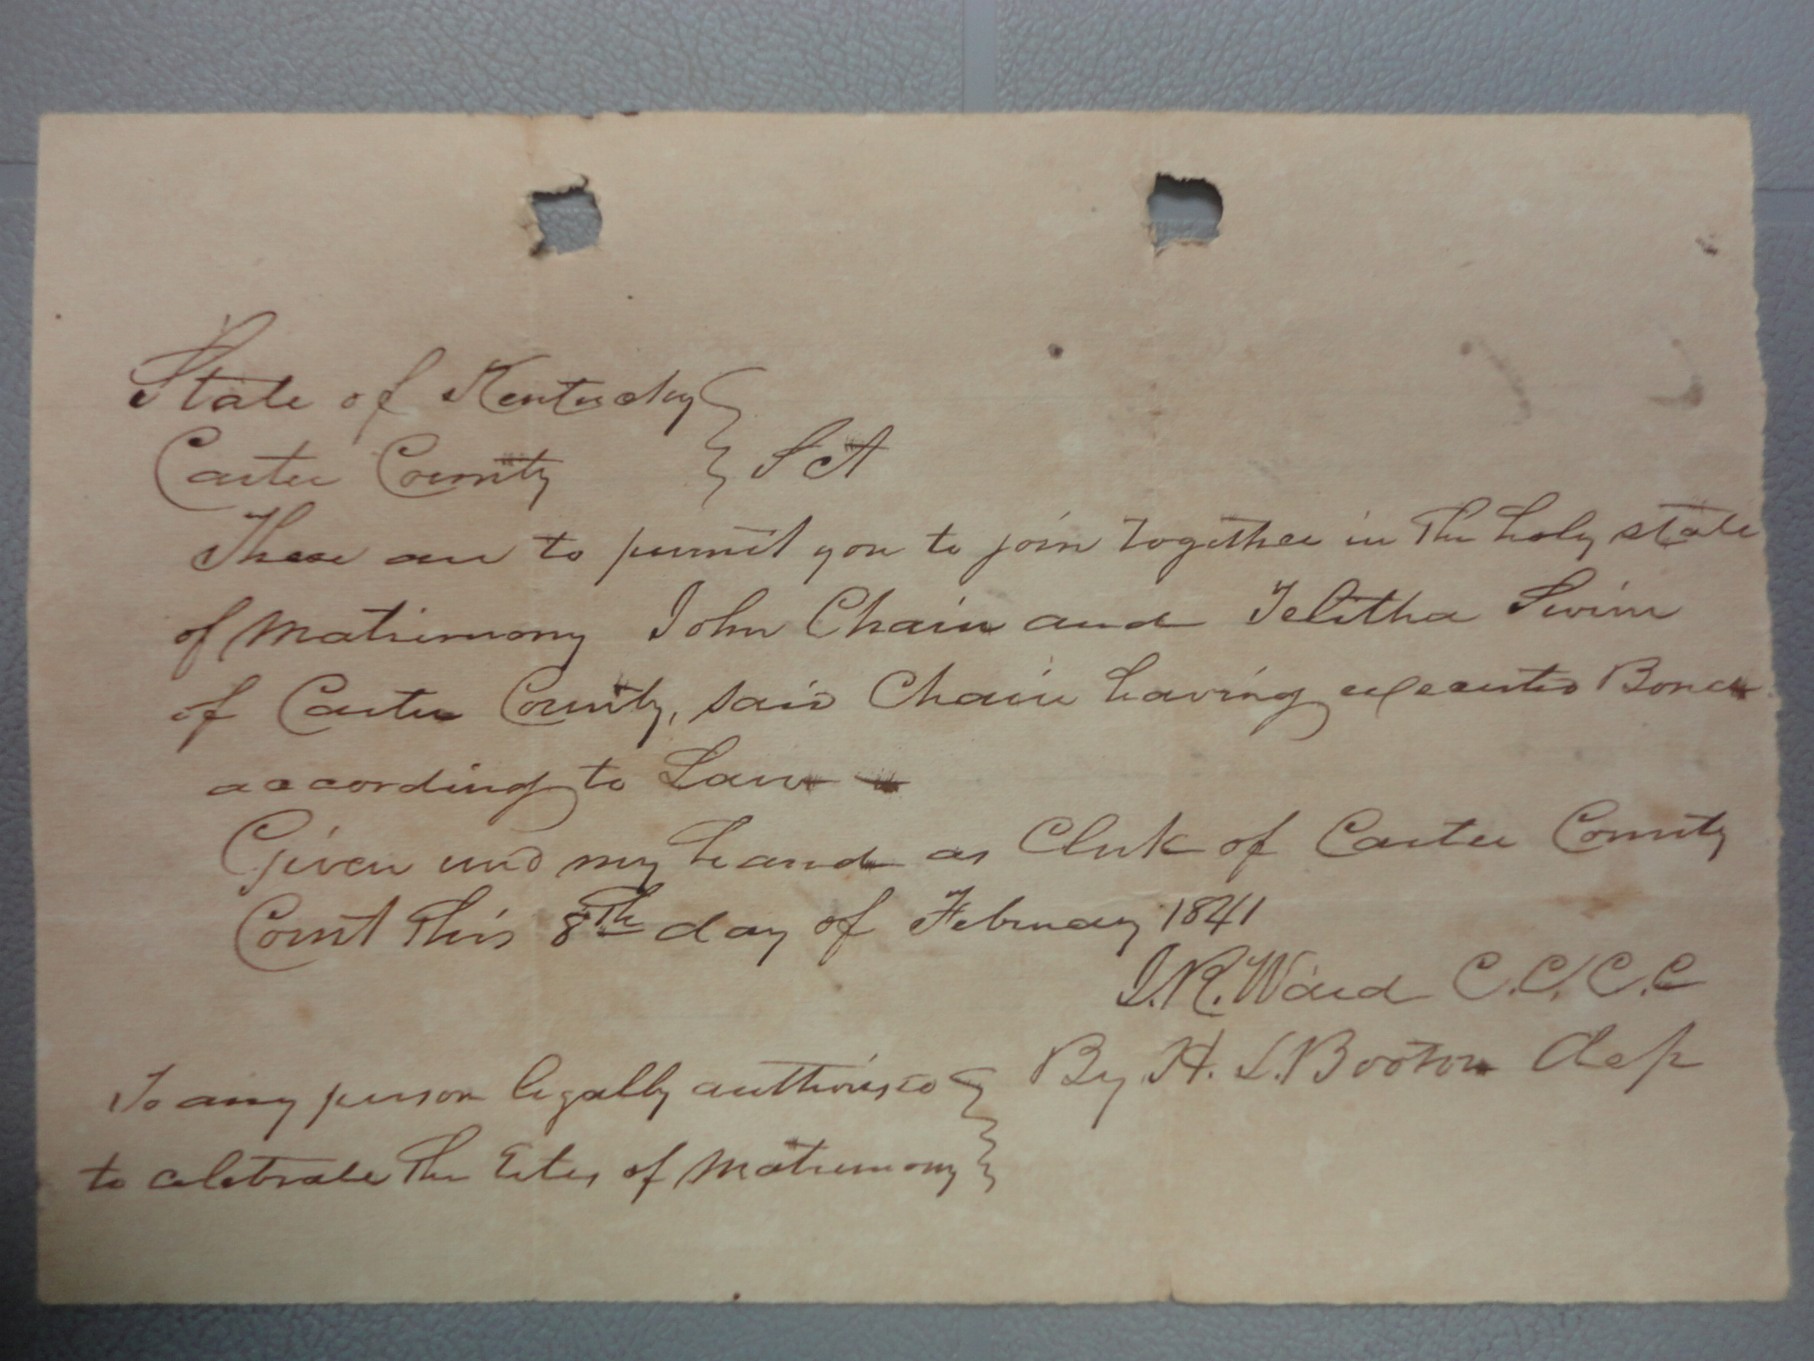 State of Kentucky
Carter County } Sct
These are to permit you to join together in the holy state
of matrimony John Chain and Telitha Swim
of Carter County, said Chain having executed Bond
according to Law
Given und my hand as Clerk of Carter County
Court this 8th day of February 1841
J. R. Ward C. C. C. C
By H. L. Booton Dep
To any person legally authorised
to celebrate the rites of matrimony